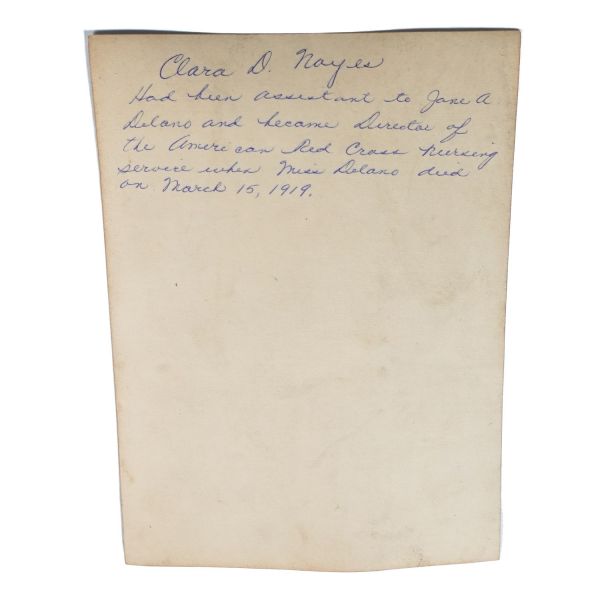 Clara D. Noyes
Had been assistant to Jane A
Delano and became Director of
the American Red Cross Nursing
service when Miss Delano died
on March 15, 1919.